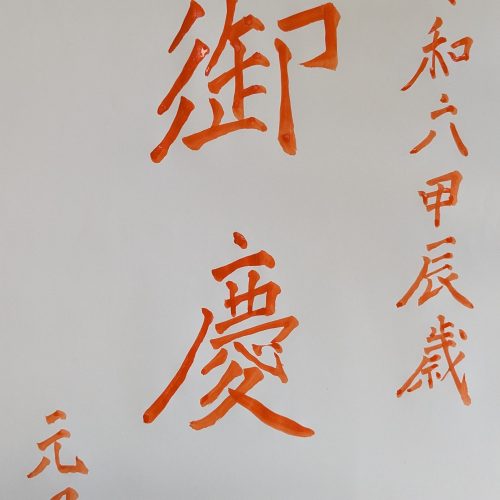 和六甲辰歳
御慶
元